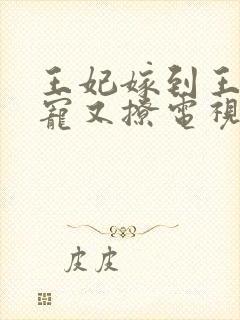 王妃嫁到王
寵又撩電視
皮皮